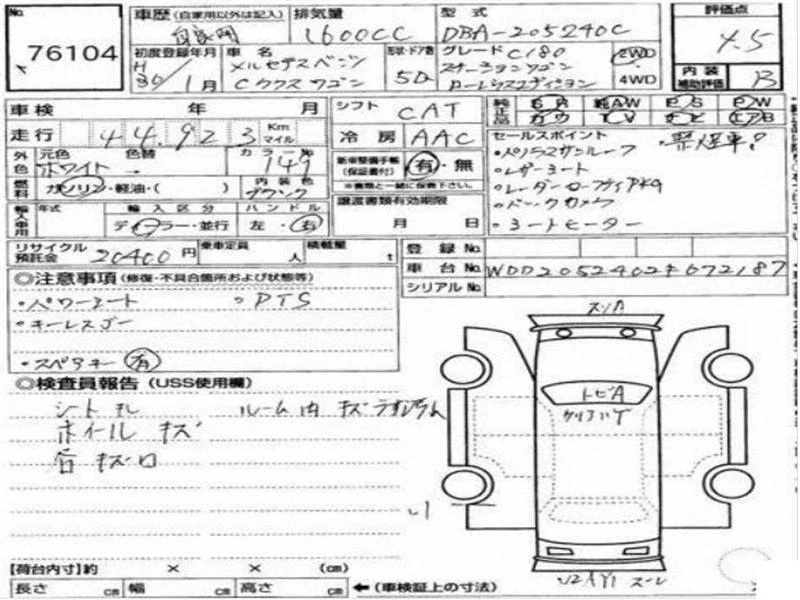 No. 76104
車歴 (自家用以外は記入) 自家用
排気量 1600CC
型式 DBA-205240C
評価点 4.5
初度登録年月 H 30/1月
車名 メルセデスベンツ Cクラスワゴン
形状・ドア数 5D
グレード C180 ステーションワゴン ローレウスエディション
2WD
4WD
内装補助評価 B
車検 年 月
シフト CAT
純正品 SR 純AW PS PW カワ TV ナビ エアB
走行 44,923 Km マイル
冷房 AAC
セールスポイント
外色 元色 ホワイト 色替 → カラーNo. 149
新車整備手帳 (保証書付) 有・無
※書類と一緒に保管下さい。
・パノラマサンルーフ ・禁煙車!
・レザーシート
・レーダーセーフティPKG
・バックカメラ
・シートヒーター
燃料 ガソリン・軽油・( ) 内装色 ブラック
輸入車用 年式 輸入区分 ディーラー・並行 ハンドル 左・右
譲渡書類有効期限 月 日
リサイクル預託金 20400円 乗車定員 人 積載量 t
登録No.
車台No. WDD2052402F672187
シリアルNo.
◎注意事項 (修復・不具合箇所および状態等)
・パワーシート ・PTS
・キーレスゴー
・スペアキー 有
◎検査員報告 (USS使用欄)
シート ルーム内 キズ
ホイール キズ
キズ
スリA
トビA
【荷台内寸】約 × × (cm)
長さ cm 幅 cm 高さ cm ←(車検証上の寸法)